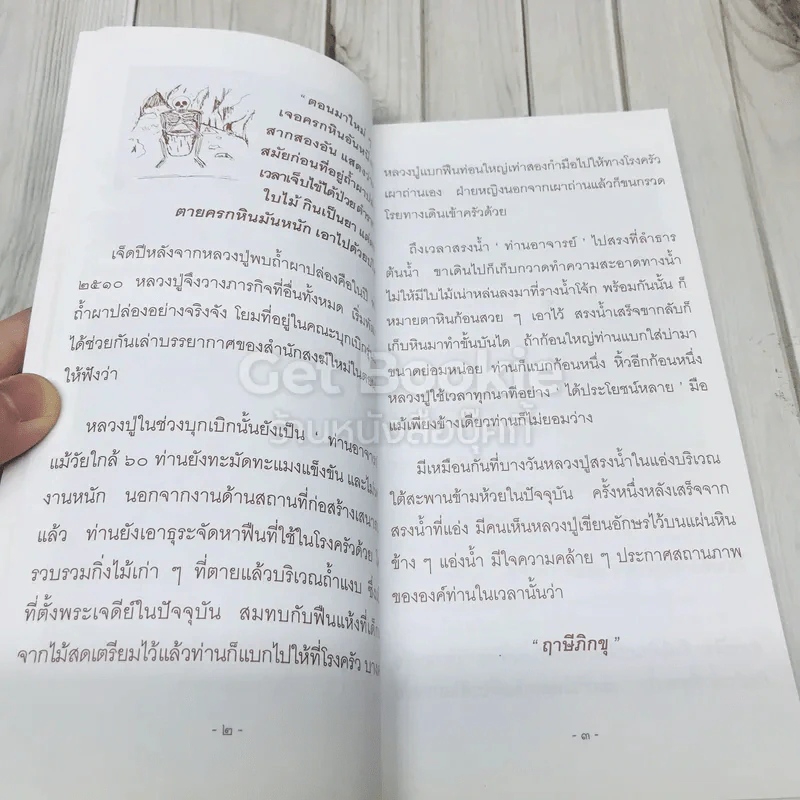 “ตอนมาใหม่
เจอครกหินอันหนึ
สากสองอัน แสดง
สมัยก่อนที่อยู่ถ้ำผา
เวลาเจ็บไข้ได้ป่วย ตำ
ใบไม้ กินเป็นยา แต่
ตายครกหินมันหนัก เอาไปด้วย
เจ็ดปีหลังจากหลวงปู่พบถ้ำผาปล่องคือในปี
๒๕๑๐ หลวงปู่จึงวางภารกิจที่อื่นทั้งหมด เริ่ม
ถ้ำผาปล่องอย่างจริงจัง โยมที่อยู่ในคณะบุกเบิก
ได้ช่วยกันเล่าบรรยากาศของสำนักสงฆ์ใหม่ใน
ให้ฟังว่า
หลวงปู่ในช่วงบุกเบิกนั้นยังเป็น ‘ ท่านอาจาร
แม้วัยใกล้ ๖๐ ท่านยังทะมัดทะแมงแข็งขัน และ
งานหนัก นอกจากงานด้านสถานที่ก่อสร้างเสนา
แล้ว ท่านยังเอาธุระจัดหาฟืนที่ใช้ในโรงครัวด้วย
รวบรวมกิ่งไม้เก่า ๆ ที่ตายแล้วบริเวณถ้ำแงบ ซึ่ง
ที่ตั้งพระเจดีย์ในปัจจุบัน สมทบกับฟืนแห้งที่เด็ก
จากไม้สดเตรียมไว้แล้วท่านก็แบกไปให้ที่โรงครัว บาง
- ๒ -
หลวงปู่แบกฟืนท่อนใหญ่เท่าสองกำมือไปให้ทางโรงครัว
เผาถ่านเอง ฝ่ายหญิงนอกจากเผาถ่านแล้วก็ขนกรวด
โรยทางเดินเข้าครัวด้วย
ถึงเวลาสรงน้ำ ‘ ท่านอาจารย์ ’ ไปสรงที่ลำธาร
ต้นน้ำ ขาเดินไปก็เก็บกวาดทำความสะอาดทางน้ำ
ไม่ให้มีใบไม้เน่าหล่นลงมาที่รางน้ำโจ้ก พร้อมกันนั้น ก็
หมายตาหินก้อนสวย ๆ เอาไว้ สรงน้ำเสร็จขากลับก็
เก็บหินมาทำขั้นบันได ถ้าก้อนใหญ่ท่านแบกใส่บ่ามา
ขนาดย่อมหน่อย ท่านก็แบกก้อนหนึ่ง หิ้วอีกก้อนหนึ่ง
หลวงปู่ใช้เวลาทุกนาทีอย่าง ‘ ได้ประโยชน์หลาย ’ มือ
แม้เพียงข้างเดียวท่านก็ไม่ยอมว่าง
มีเหมือนกันที่บางวันหลวงปู่สรงน้ำในแอ่งบริเวณ
ใต้สะพานข้ามห้วยในปัจจุบัน ครั้งหนึ่งหลังเสร็จจาก
สรงน้ำที่แอ่ง มีคนเห็นหลวงปู่เขียนอักษรไว้บนแผ่นหิน
ข้าง ๆ แอ่งน้ำ มีใจความคล้าย ๆ ประกาศสถานภาพ
ขององค์ท่านในเวลานั้นว่า
“ ฤาษีภิกขุ ”
- ๓ -
Get Bookie
ร้านหนังสือบุ๊คกี้